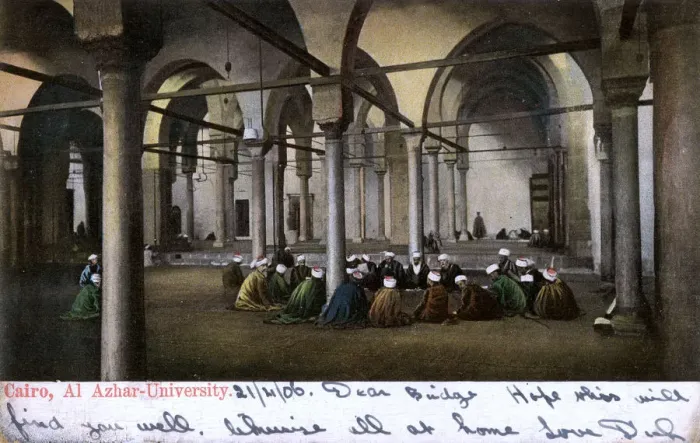 Cairo, Al Azhar-University. 21/11/06. Dear Bridge Hope this will
find you well. likewise all at home Love